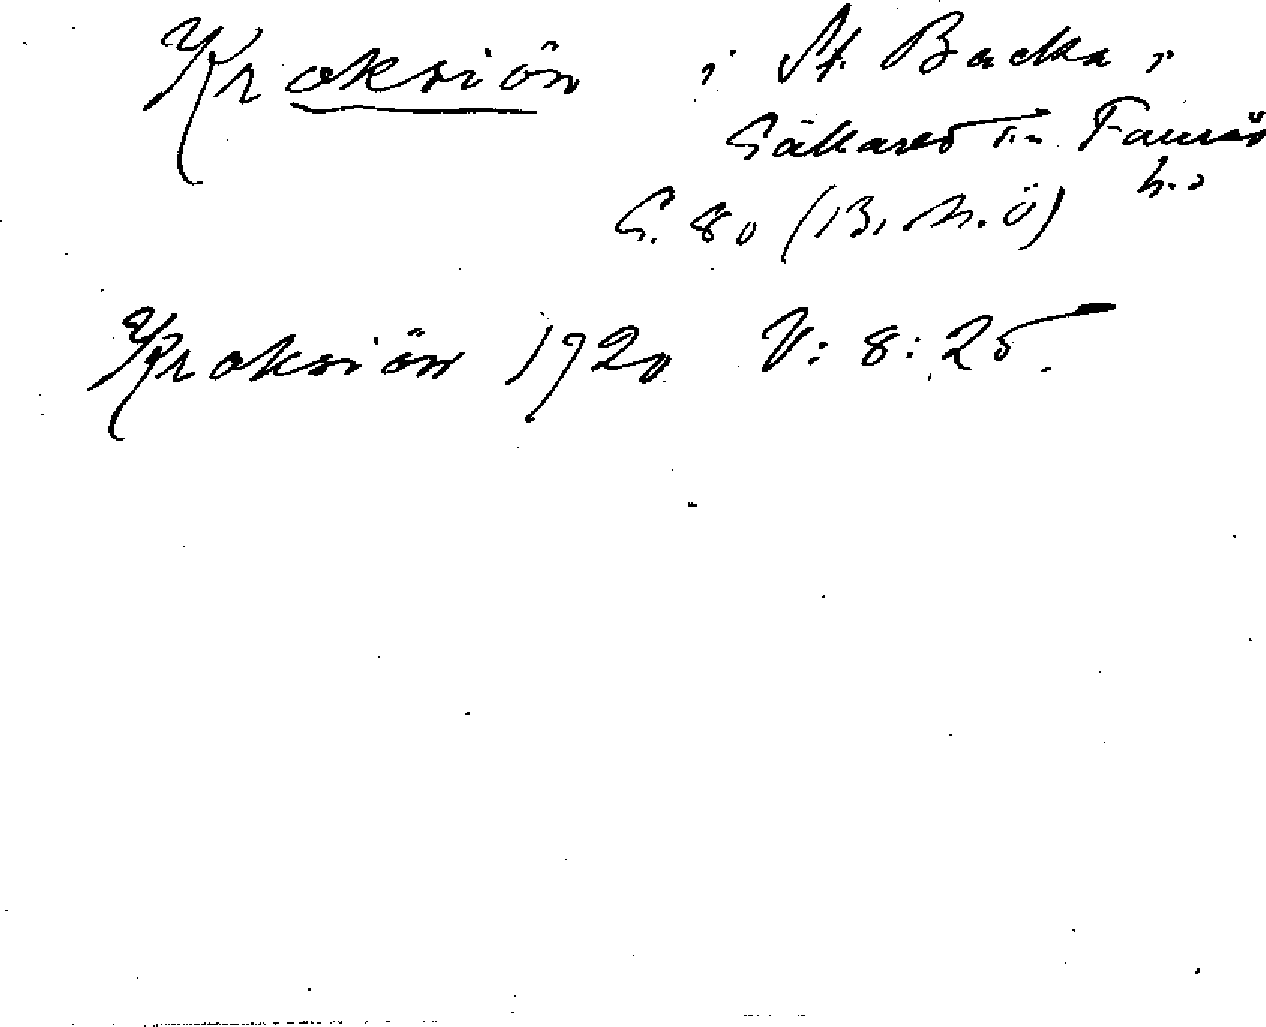 Kroksiön i St. Backa i
Gällared sn. Faurås
h.
G. 80 (B. M. Ö)
Kroksiön 1920 V: 8: 25.